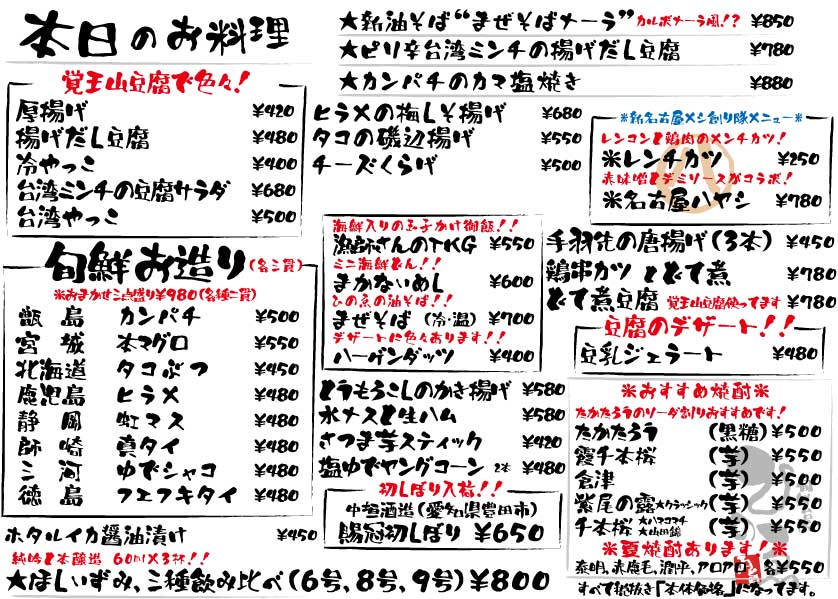 本日のお料理
★新油そば“まぜそばナーラ”カルボナーラ風!? ¥850
★ピリ辛台湾ミンチの揚げだし豆腐 ¥780
★カンパチのカマ塩焼き ¥880
覚王山豆腐で色々!
厚揚げ ¥420
揚げだし豆腐 ¥480
冷やっこ ¥400
台湾ミンチの豆腐サラダ ¥680
台湾やっこ ¥500
ヒラメの梅しそ揚げ ¥680
タコの磯辺揚げ ¥550
チーズくらげ ¥500
※新名古屋メシ創り隊メニュー※
レンコンと鶏肉のメンチカツ!
※レンチカツ ¥250
赤味噌とデミソースがコラボ!
※名古屋ハヤシ ¥780
旬鮮お造り(各二貫)
※おまかせ三点盛り¥980(各種二貫)
甑島 カンパチ ¥500
宮城 本マグロ ¥550
北海道 タコぶつ ¥450
鹿児島 ヒラメ ¥480
静岡 虹マス ¥480
師崎 真タイ ¥480
三河 ゆでシャコ ¥480
徳島 フエフキタイ ¥480
ホタルイカ醤油漬け ¥450
純吟と本醸造 60ml×3杯!!
★ほしいずみ、三種飲み比べ(6号、8号、9号)¥800
海鮮入りの玉子かけ御飯!!
漁師さんのTKG ¥550
ミニ海鮮どん!!
まかないめし ¥600
ひの京の油そば!!
まぜそば (冷・温) ¥700
デザートに色々あります!!
ハーゲンダッツ ¥400
とうもろこしのかき揚げ ¥580
水ナスと生ハム ¥580
さつま芋スティック ¥420
塩ゆでヤングコーン 2本 ¥480
初しぼり入荷!!
中垣酒造(愛知県豊田市)
賜冠初しぼり ¥650
手羽先の唐揚げ(3本) ¥450
鶏串カツ とどて煮 ¥780
どて煮豆腐 覚王山豆腐使ってます ¥780
豆腐のデザート!!
豆乳ジェラート ¥480
※おすすめ焼酎※
たかたろうのソーダ割りおすすめです!
たかたろう (黒糖) ¥500
霞千本桜 (芋) ¥550
倉津 (芋) ¥500
紫尾の露★クラッシック(芋) ¥550
千本桜 ★ハマコマチ ★山田錦 (芋) ¥500
※夏焼酎あります!※
泰明、赤鹿毛、潤平、アロアロ 各¥550
すべて税抜き「本体価格」になってます。